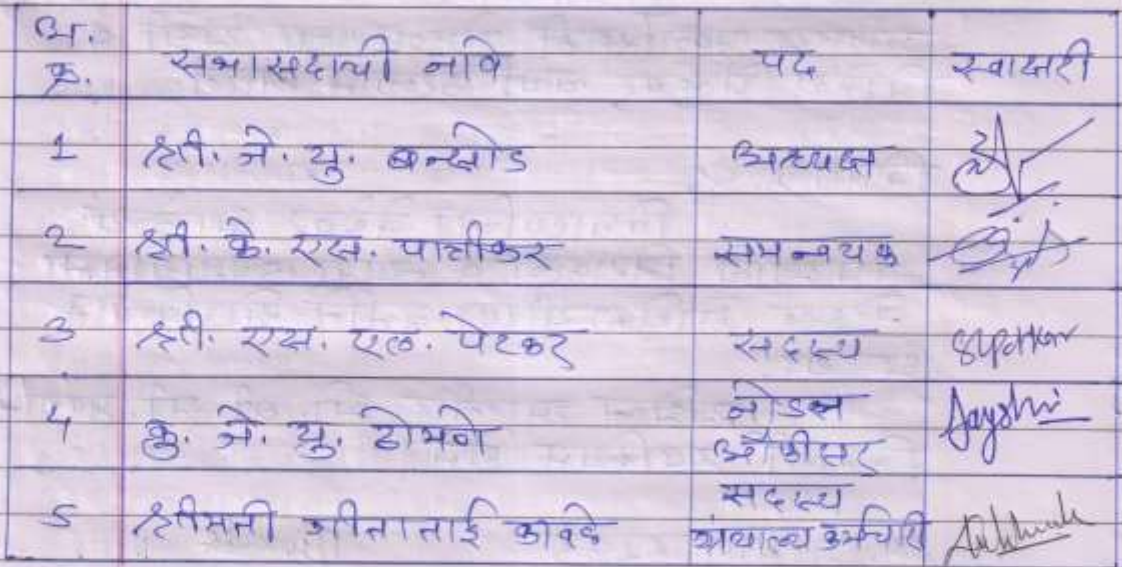 अ.
क्र. सभासदाची नावे पद स्वाक्षरी
1 श्री. जे. यु. बन्सोड अध्यक्ष
2 श्री. के. एस. पात्तीकर समन्वयक
3 श्री. एस. एल. पेटकर सदस्य
4 कु. जे. यु. ठोमणे नोडल
ऑफीसर Jayshri
5 श्रीमती गीताताई कावडे सदस्य
ग्रंथालय कर्मचारी